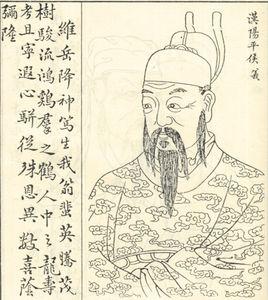 漢陽平侯義
維岳降神寫生我翁蜚英騰茂
樹駿流鴻鷄羣之鶴人中之龍壽
考且寧遐心駢從殊恩異數喜蔭
彌隆